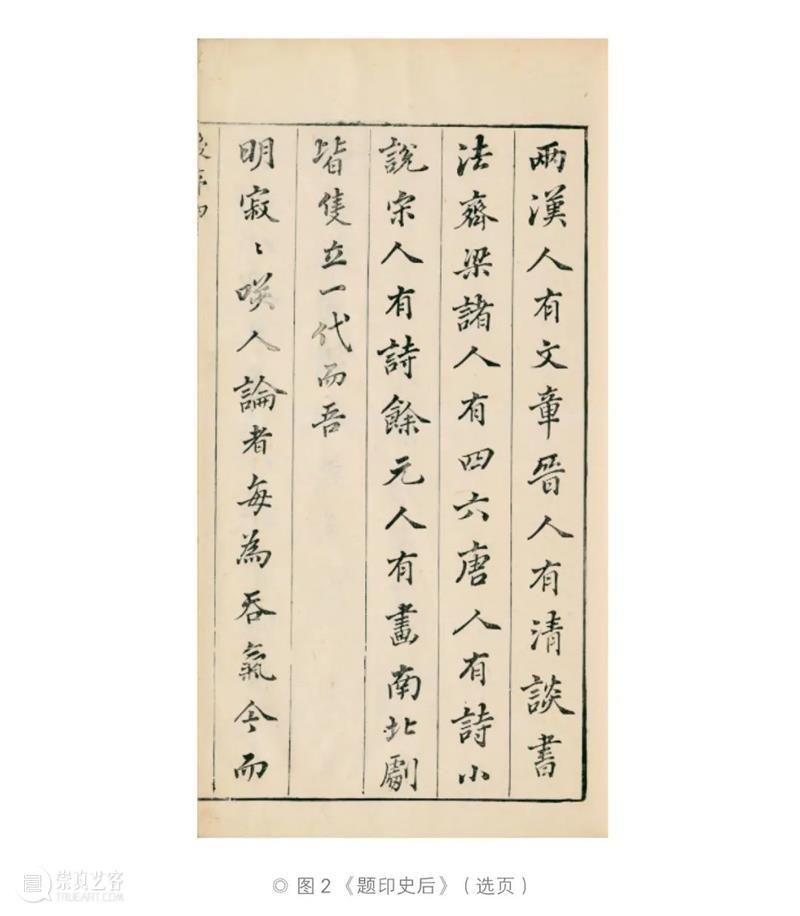 兩漢人有文章晉人有清談書
法齊梁諸人有四六唐人有詩小
說宋人有詩餘元人有畫南北劇
皆隻立一代而吾
明寂〻咲人論者每為吞氣今而
後年
崇真艺客
TRUEART.COM
◎ 图2《题印史后》（选页）